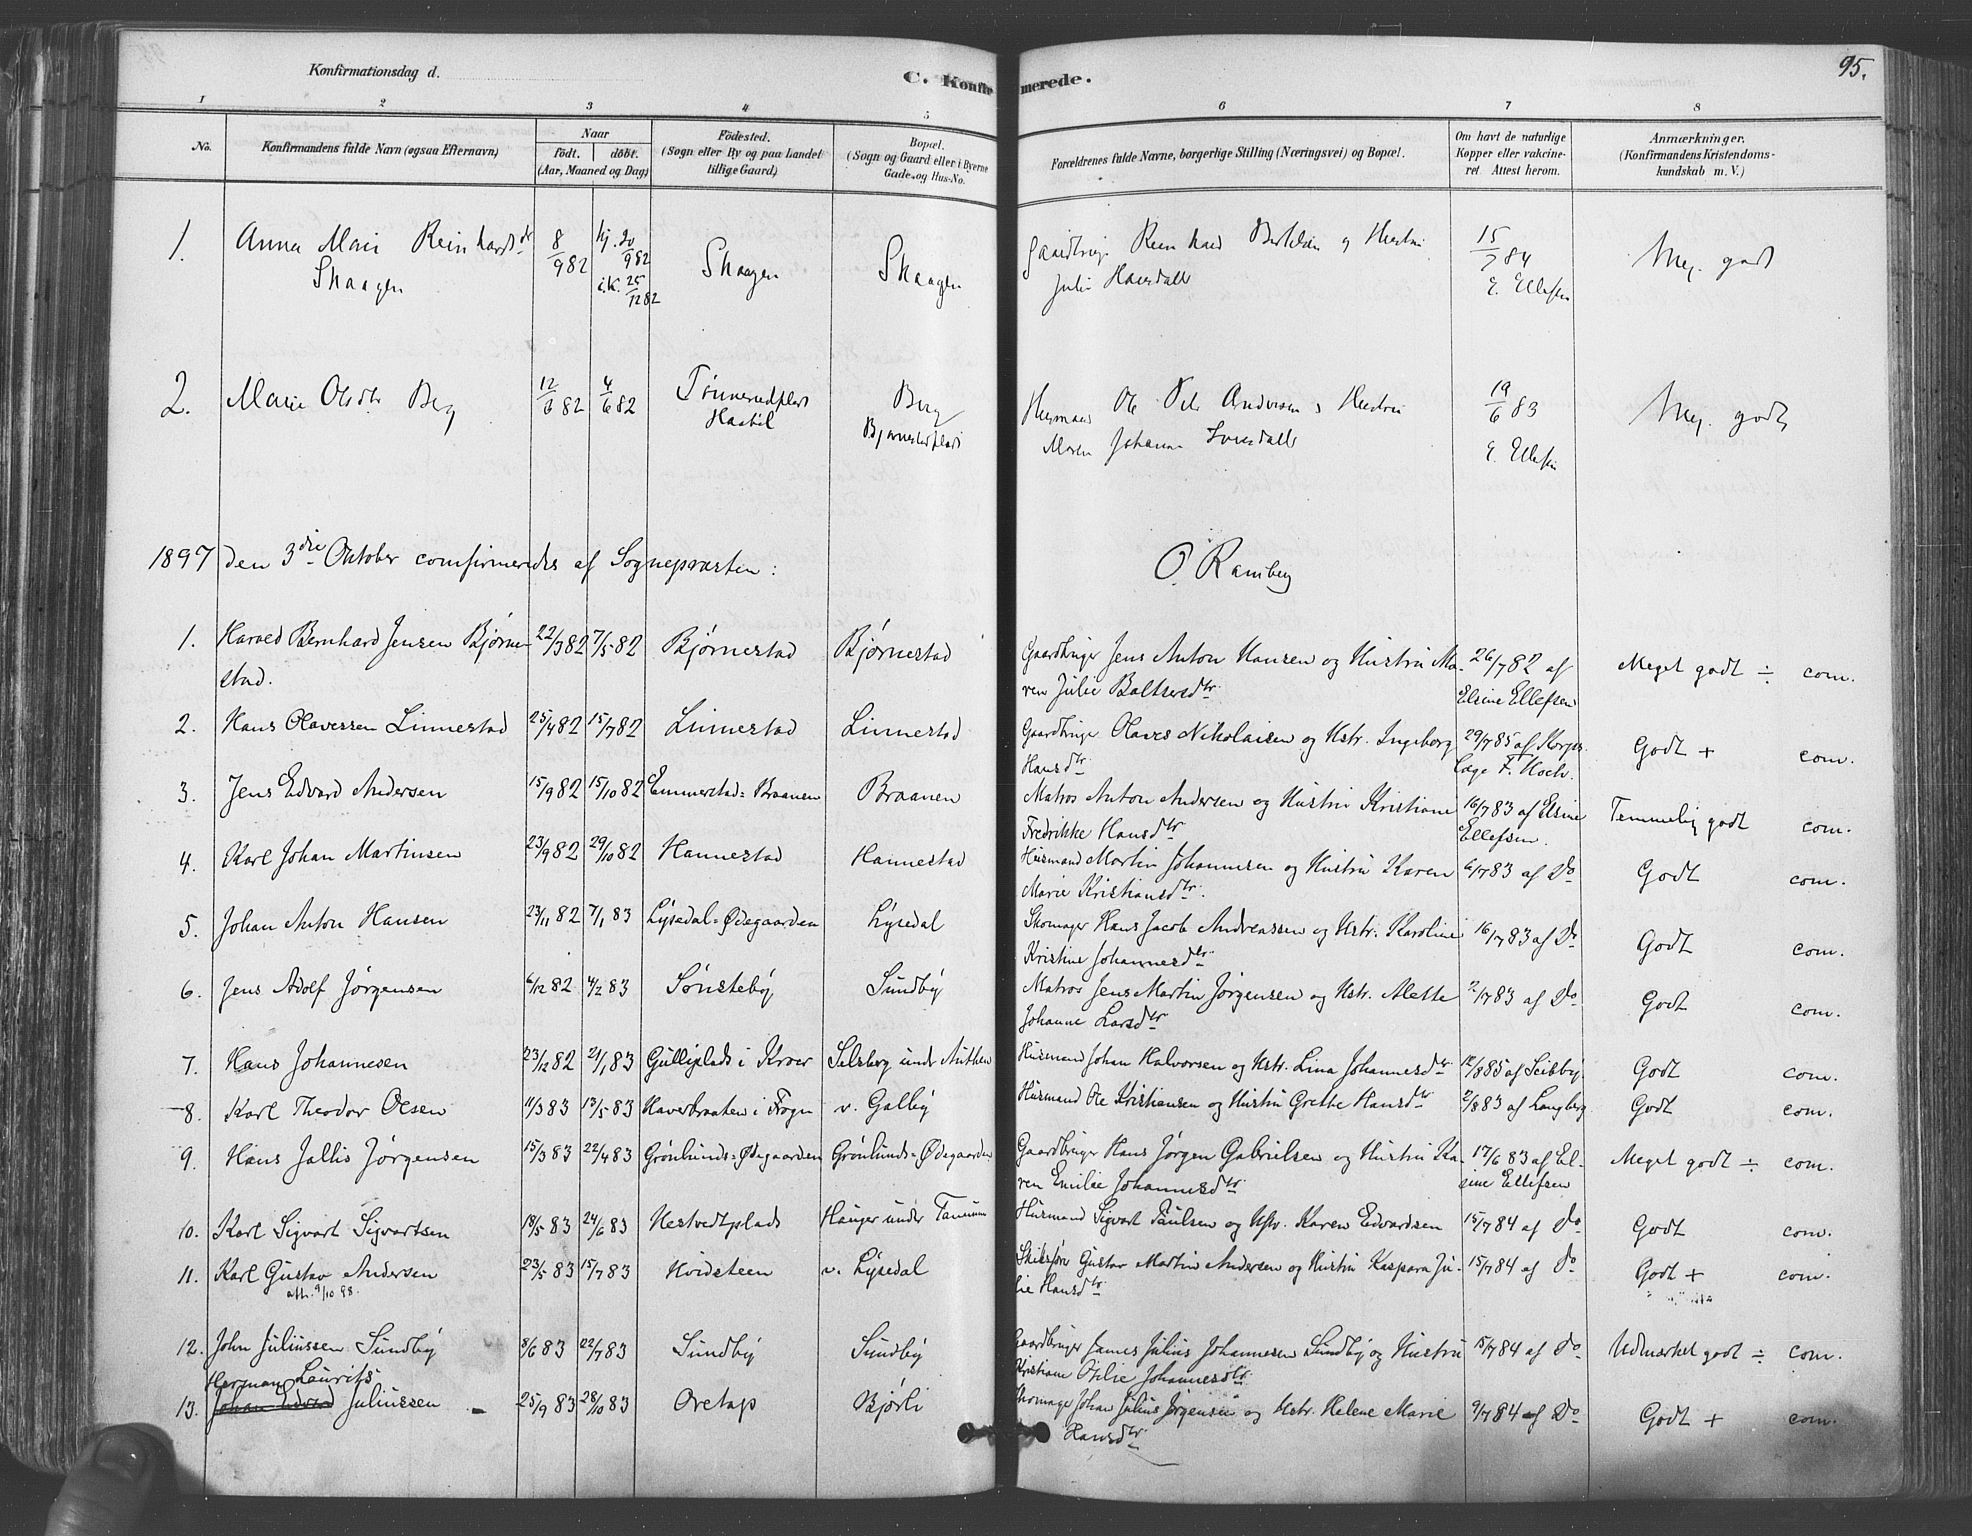 Konfirmationsdag d.
C. Konfirmerede.
95.
1 2 3 4 5 6 7 8
No.
Konfirmandens fulde Navn (ogsaa Efternavn)
Naar
født. døbt.
(Aar, Maaned og Dag)
Fødested.
(Sogn eller By og paa Landet tillige Gaard)
Bopæl.
(Sogn og Gaard eller i Byerne Gade og Hus-No.
Forældrenes fulde Navne, borgerlige Stilling (Næringsvei) og Bopæl.
Om havt de naturlige Kopper eller vakcineret. Attest herom.
Anmærkninger.
(Konfirmandens Kristendomskundskab m. V.)
1. Anna Mari Reinhardsdr 8/9 82 hj. 20/9 82 Skaagen Skaagen Reinhard og Hustru 15/7 84 Meg. godt
Skaagen i.K. 25/12 82 Julie E. Ellefsen
2. Marie Olsdtr Berg 12/6 82 4/6 82 Berg Husmand Ole Andersen og Hustru 19/6 83 Meg. godt
Bjørnestadplads Maren Johanne E. Ellefsen
1897 den 3die Oktober comfirmeredes af Sognepræsten: O. Ramberg
1. Harald Bernhard Jensen Bjørne- 22/3 82 7/5 82 Bjørnestad Bjørnestad Gaardbruger Jens Anton Hansen og Hustru Ma- 26/7 82 af Meget godt ÷ com.
stad. ren Julie Baltsersdtr Elsine Ellefsen
2. Hans Olavessen Linnestad 25/4 82 15/7 82 Linnestad Linnestad Gaardbruger Olaves Nikolaisen og Hstr. Ingeborg 29/7 85 af Korps- Godt + com.
Hansdtr læge F. Koch.
3. Jens Edvard Andersen 15/9 82 15/10 82 Emmerstad=Braanen Braanen Matros Anton Andersen og Hustru Kristiane 16/7 83 af Elsine Temmelig godt com.
Fredrikke Hansdtr Ellefsen.
4. Karl Johan Martinsen 23/9 82 29/10 82 Hannestad Hannestad Husmand Martin Johannesen og Hustru Karen 6/7 83 af Do Godt com.
Marie Kristiansdtr.
5. Johan Anton Hansen 23/11 82 7/1 83 Lysedal=Ødegaarden Lysedal Skomager Hans Jacob Andreassen og Hstr. Karoline 16/7 83 af Do Godt com.
Kristine Johannesdtr.
6. Jens Adolf Jørgensen 6/12 82 4/2 83 Sønsteby Sundby Matros Jens Martin Jørgensen og Hstr. Alette 2/7 83 af Do Godt com.
Johanne Larsdtr
7. Hans Johannesen 23/12 82 21/1 83 Gulliplads i Kroer Salsberg under Husmand Johan Halvorsen og Hstr. Lina Johannesdtr 12/8 85 af Godt com.
8. Karl Theodor Olsen 11/3 83 13/5 83 Haverbraaten i Frogn v. Galby Husmand Ole Kristiansen og Hustru Grethe Hansdtr 2/8 83 af Langberg Godt com.
9. Hans Jallis Jørgensen 15/3 83 22/4 83 Grønlunds=Ødegaarden Grønlunds=Ødegaarden Gaardbruger Hans Jørgen Gabrielsen og Hustru Ka- 17/6 83 af El- Meget godt ÷ com.
ren Emilie Johannesdtr sine Ellefsen
10. Karl Sigvart Sigvartsen 18/5 83 24/6 83 Nestvedtplads Hauger under Tanum Husmand Sigvart Paulsen og Hstr. Karen Edvardsen 15/7 84 af Do Godt com.
11. Karl Gustav Andersen 23/5 83 15/7 83 Hvidsteen v. Lysedal Gustav Martin Andersen og Hustru Kaspara Ju- 15/7 84 af Do Godt + com.
att. 9/10 98. lie Hansdtr
12. John Juliussen Sundby 8/6 83 22/7 83 Sundby Sundby Gaardbruger James Julius Johannesen Sundby og Hustru 15/7 84 af Do Udmærket godt ÷ com.
Kristiane Otilie Johannesdtr
Herman Laurits
13. Johan Edvard Juliussen 25/9 83 28/10 83 Oretap Bjørli Skomager Johan Julius Jørgensen og Hstr. Helene Marie 9/7 84 af Do Godt + com.
Hansdtr